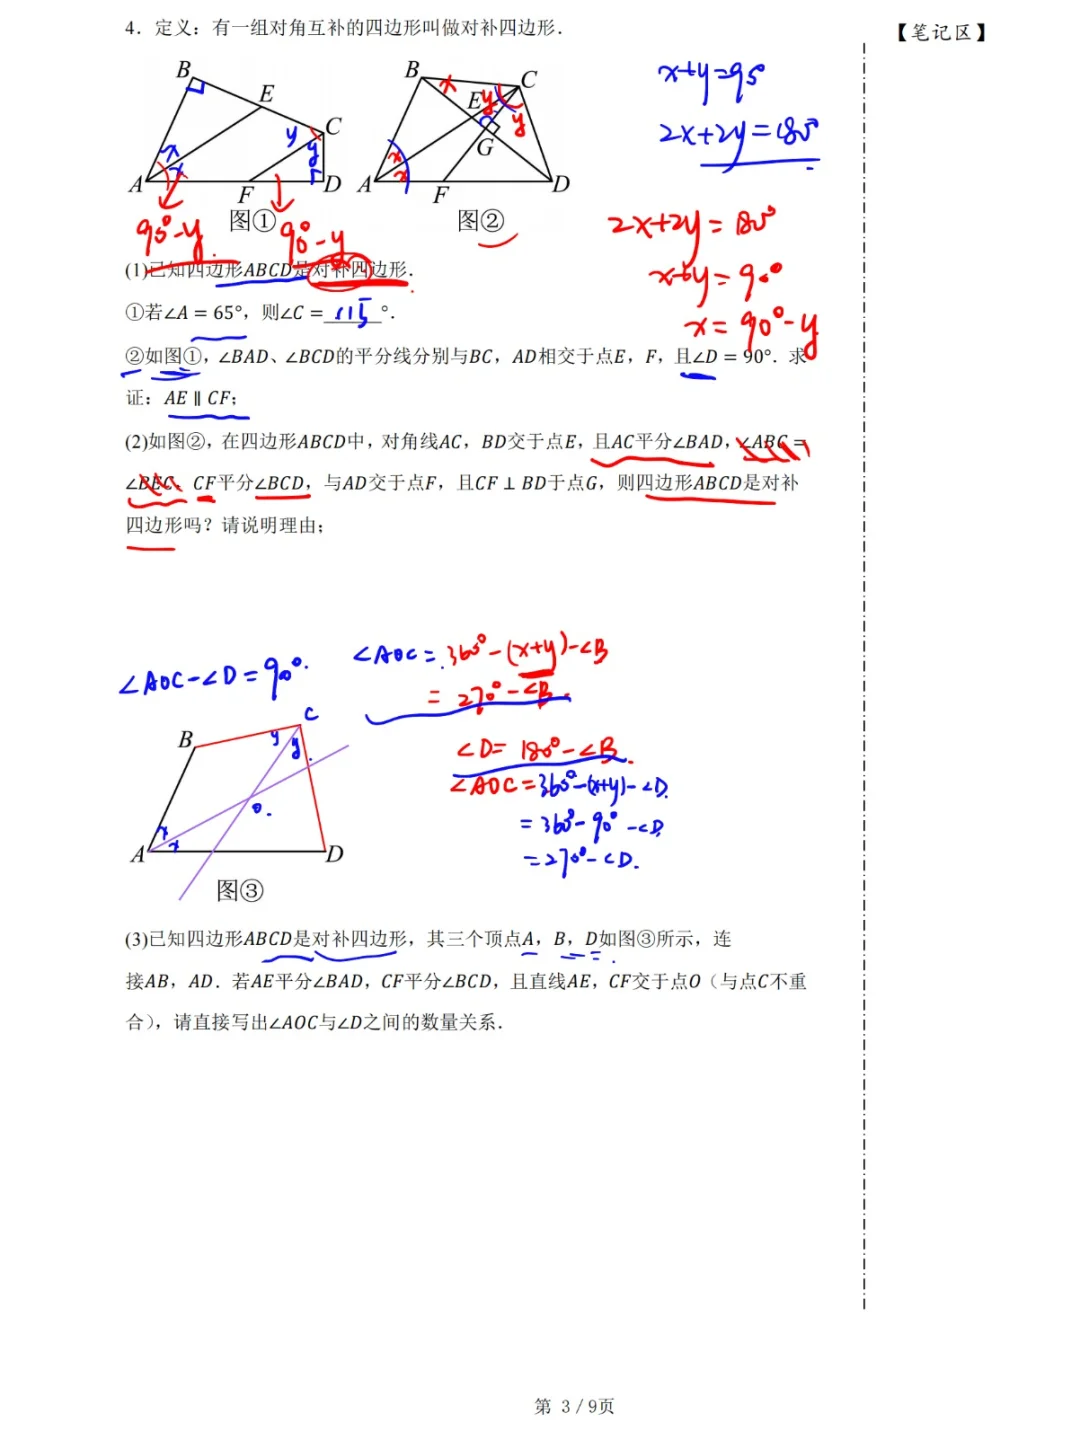 4．定义：有一组对角互补的四边形叫做对补四边形．
【笔记区】
B E C A F D
x x y y
90°-y 90°-y
图①
B C E G A F D
x y y x x
图②
x+y=90
2x+2y=180°
2x+2y=180°
x+y=90°
x=90°-y
(1)已知四边形ABCD是对补四边形．
①若∠A = 65°，则∠C = 115 °．
②如图①，∠BAD、∠BCD的平分线分别与BC，AD相交于点E，F，且∠D = 90°．求
证：AE ∥ CF；
(2)如图②，在四边形ABCD中，对角线AC，BD交于点E，且AC平分∠BAD，∠ABC =
∠BEC，CF平分∠BCD，与AD交于点F，且CF ⊥ BD于点G，则四边形ABCD是对补
四边形吗？请说明理由；
∠AOC-∠D=90°.
∠AOC=360°-(x+y)-∠B
=270°-∠B.
∠D=180°-∠B.
∠AOC=360°-(x+y)-∠D.
=360°-90°-∠D
=270°-∠D.
B C A D
y y x x o.
图③
(3)已知四边形ABCD是对补四边形，其三个顶点A，B，D如图③所示，连
接AB，AD．若AE平分∠BAD，CF平分∠BCD，且直线AE，CF交于点O（与点C不重
合），请直接写出∠AOC与∠D之间的数量关系．
第 3 / 9页